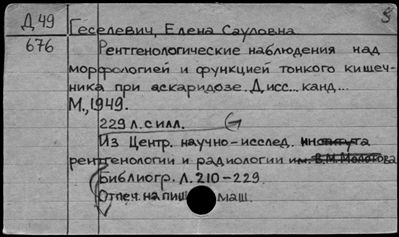 Д 49
676
Геселевич, Елена Сауловна
Рентгенологические наблюдения над
морфологией и функцией тонкого кишеч-
ника при аскаридозе. Дисс... канд...
М., 1949.
229 л. с илл.
Из Центр. научно-исслед. института
рентгенологии и радиологии им. В.М. Молотова
Библиогр. Л. 210-229
Отпеч. на пиш маш.